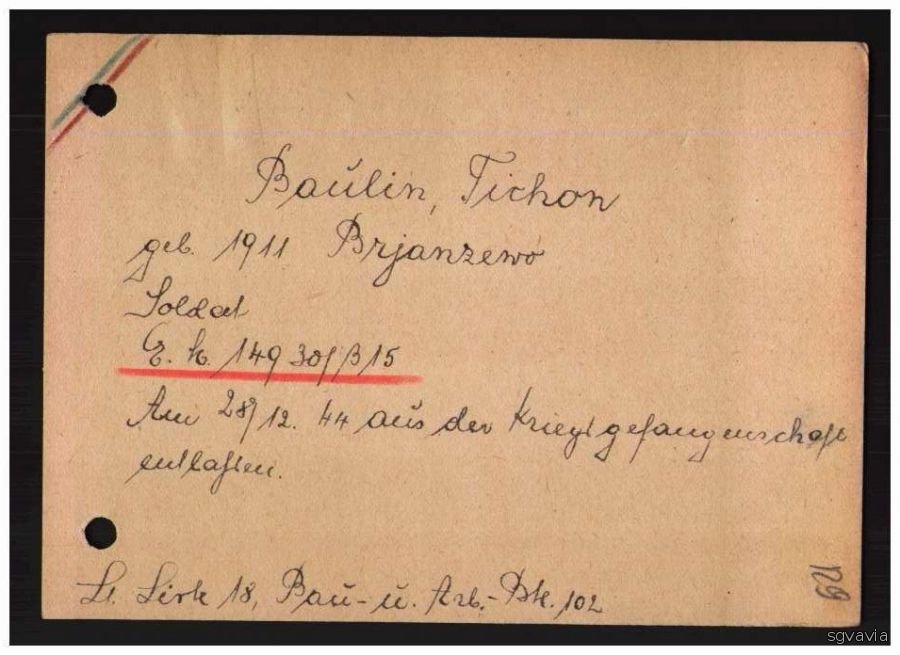 Baulin, Tichon
geb. 1911 Brjanzewo
Soldat
E. k. 149 30/β15
Am 28/12. 44 aus der Kriegsgefangenschaft
entlassen.
Lt. Liste 18, Bau- u. Arb.-Btl. 102
129
sgvavia